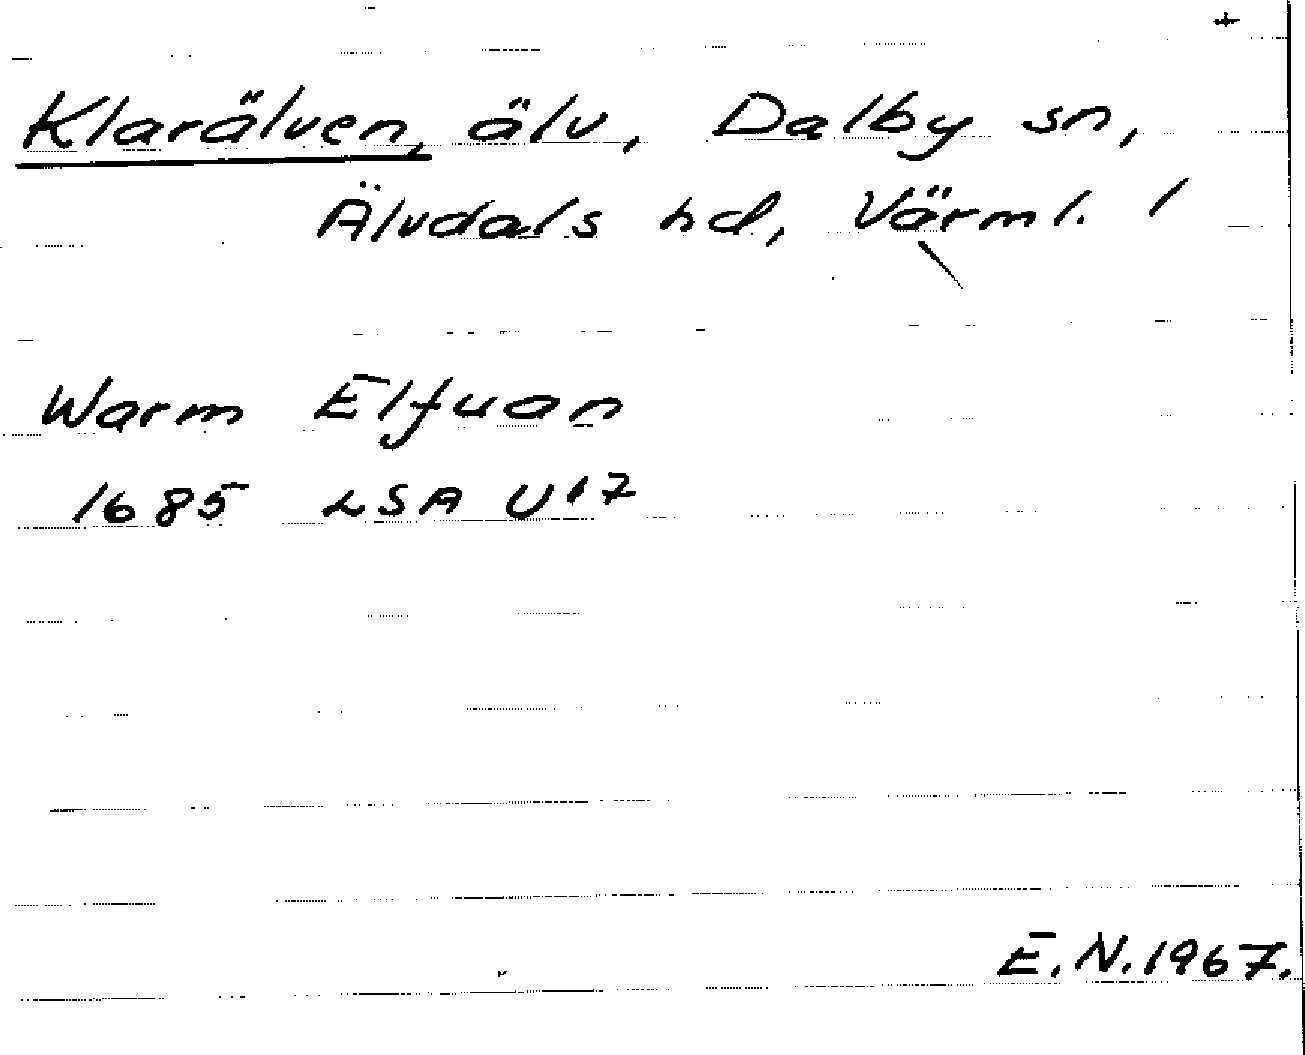 +
Klarälven, älv, Dalby sn,
Älvdals hd, Värml. /
Warm Elfuan
1685 LSA U17
E.N.1967.